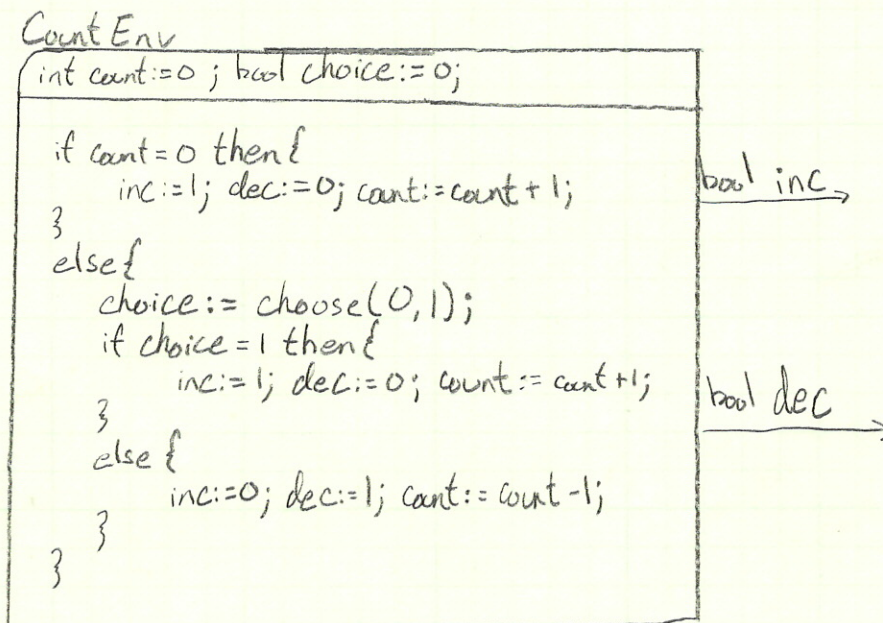 Count Env
int count:=0 ; bool choice:=0;
if count=0 then{
inc:=1; dec:=0; count:=count+1;
}
bool inc
else{
choice:= choose(0,1);
if choice=1 then{
inc:=1; dec:=0; count:= count+1;
}
bool dec
else {
inc:=0; dec:=1; count:= count-1;
}
}